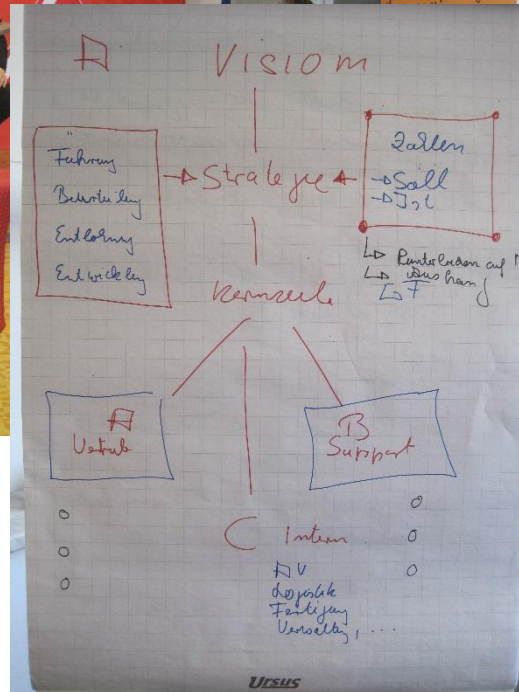 A
VISION
Führung
Beurteilung
Entlohnung
Entwicklung
Strategie
Zahlen
Soll
Ist
Runterbrechen auf
Aushang
F
Kernziele
A
Vertrieb
B
Support
C Intern
AV
Logistik
Fertigung
Verwaltung, ...
Ursus